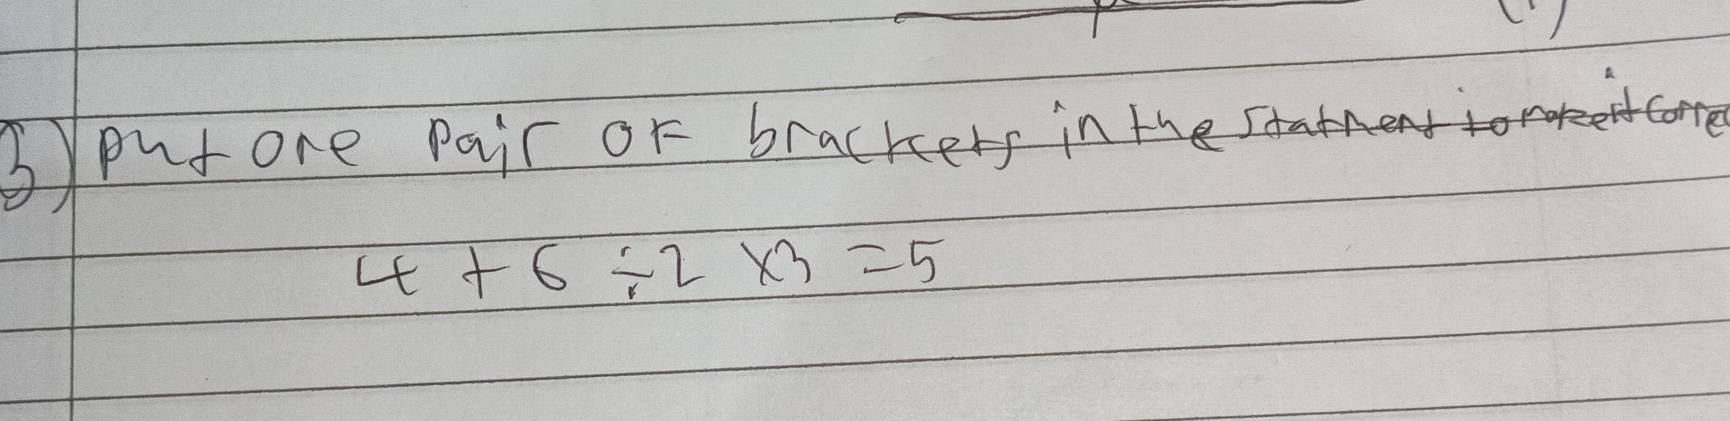 3) Put one pair of brackets in the statment to make it correc
4 + 6 ÷ 2 × 3 = 5